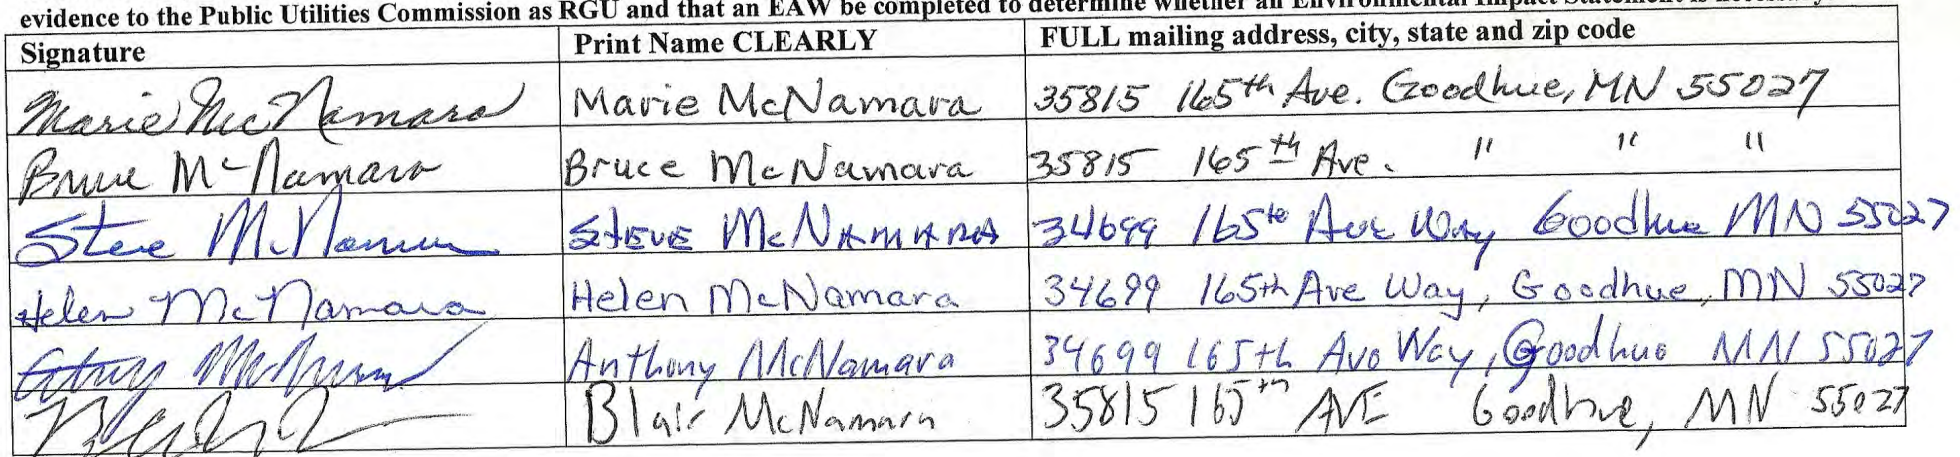 evidence to the Public Utilities Commission as RGU and that an EAW be completed to determine whether an Environmental Impact Statement is necessary
Signature Print Name CLEARLY FULL mailing address, city, state and zip code
Marie McNamara Marie McNamara 35815 165th Ave. Goodhue, MN 55027
Bruce McNamara Bruce McNamara 35815 165th Ave. " " "
Steve McNamara STEVE McNAMARA 34699 165th Ave Way Goodhue MN 55027
Helen McNamara Helen McNamara 34699 165th Ave Way, Goodhue, MN 55027
Anthony McNamara 34699 165th Ave Way, Goodhue MN 55027
Blair McNamara 35815 165th AVE Goodhue, MN 55027